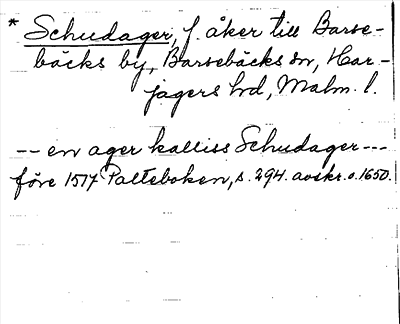 * Schudager, f. åker till Barse-
bäcks by, Barsebäcks sn, Har-
jagers hd, Malm. l.
-- en ager kalliss Schudager ---
före 1517 Palteboken, s. 294. avskr. o. 1650.